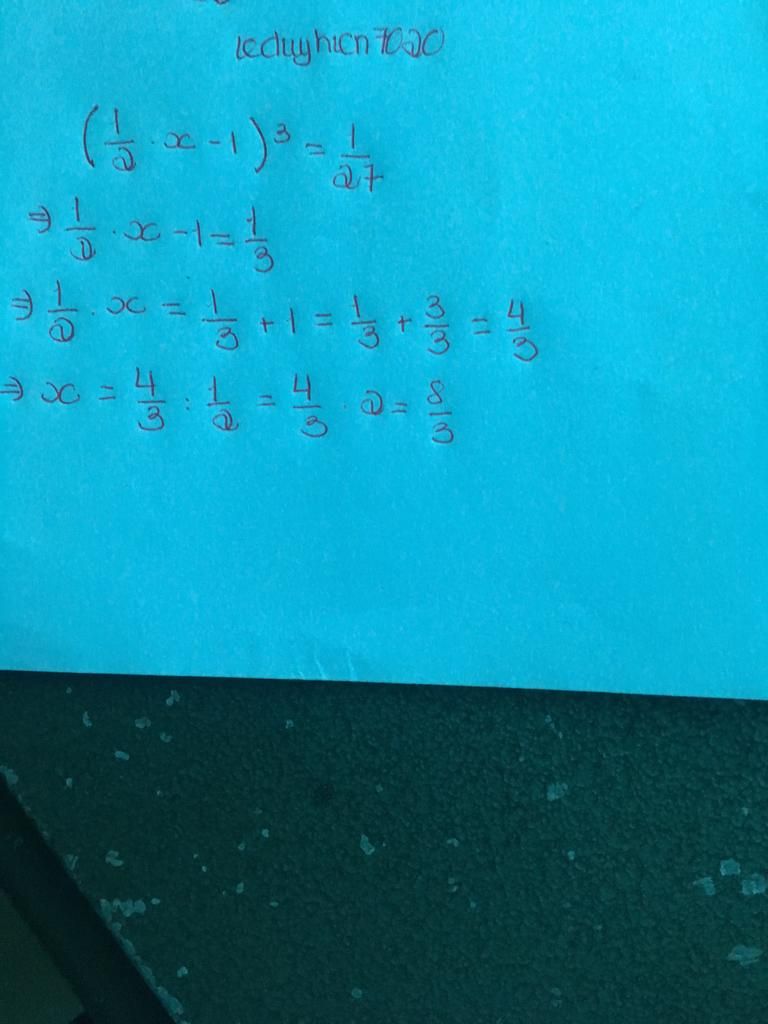 leduyhien7020
(1/2 · x - 1)³ = 1/27
⇒ 1/2 · x - 1 = 1/3
⇒ 1/2 · x = 1/3 + 1 = 1/3 + 3/3 = 4/3
⇒ x = 4/3 : 1/2 = 4/3 · 2 = 8/3